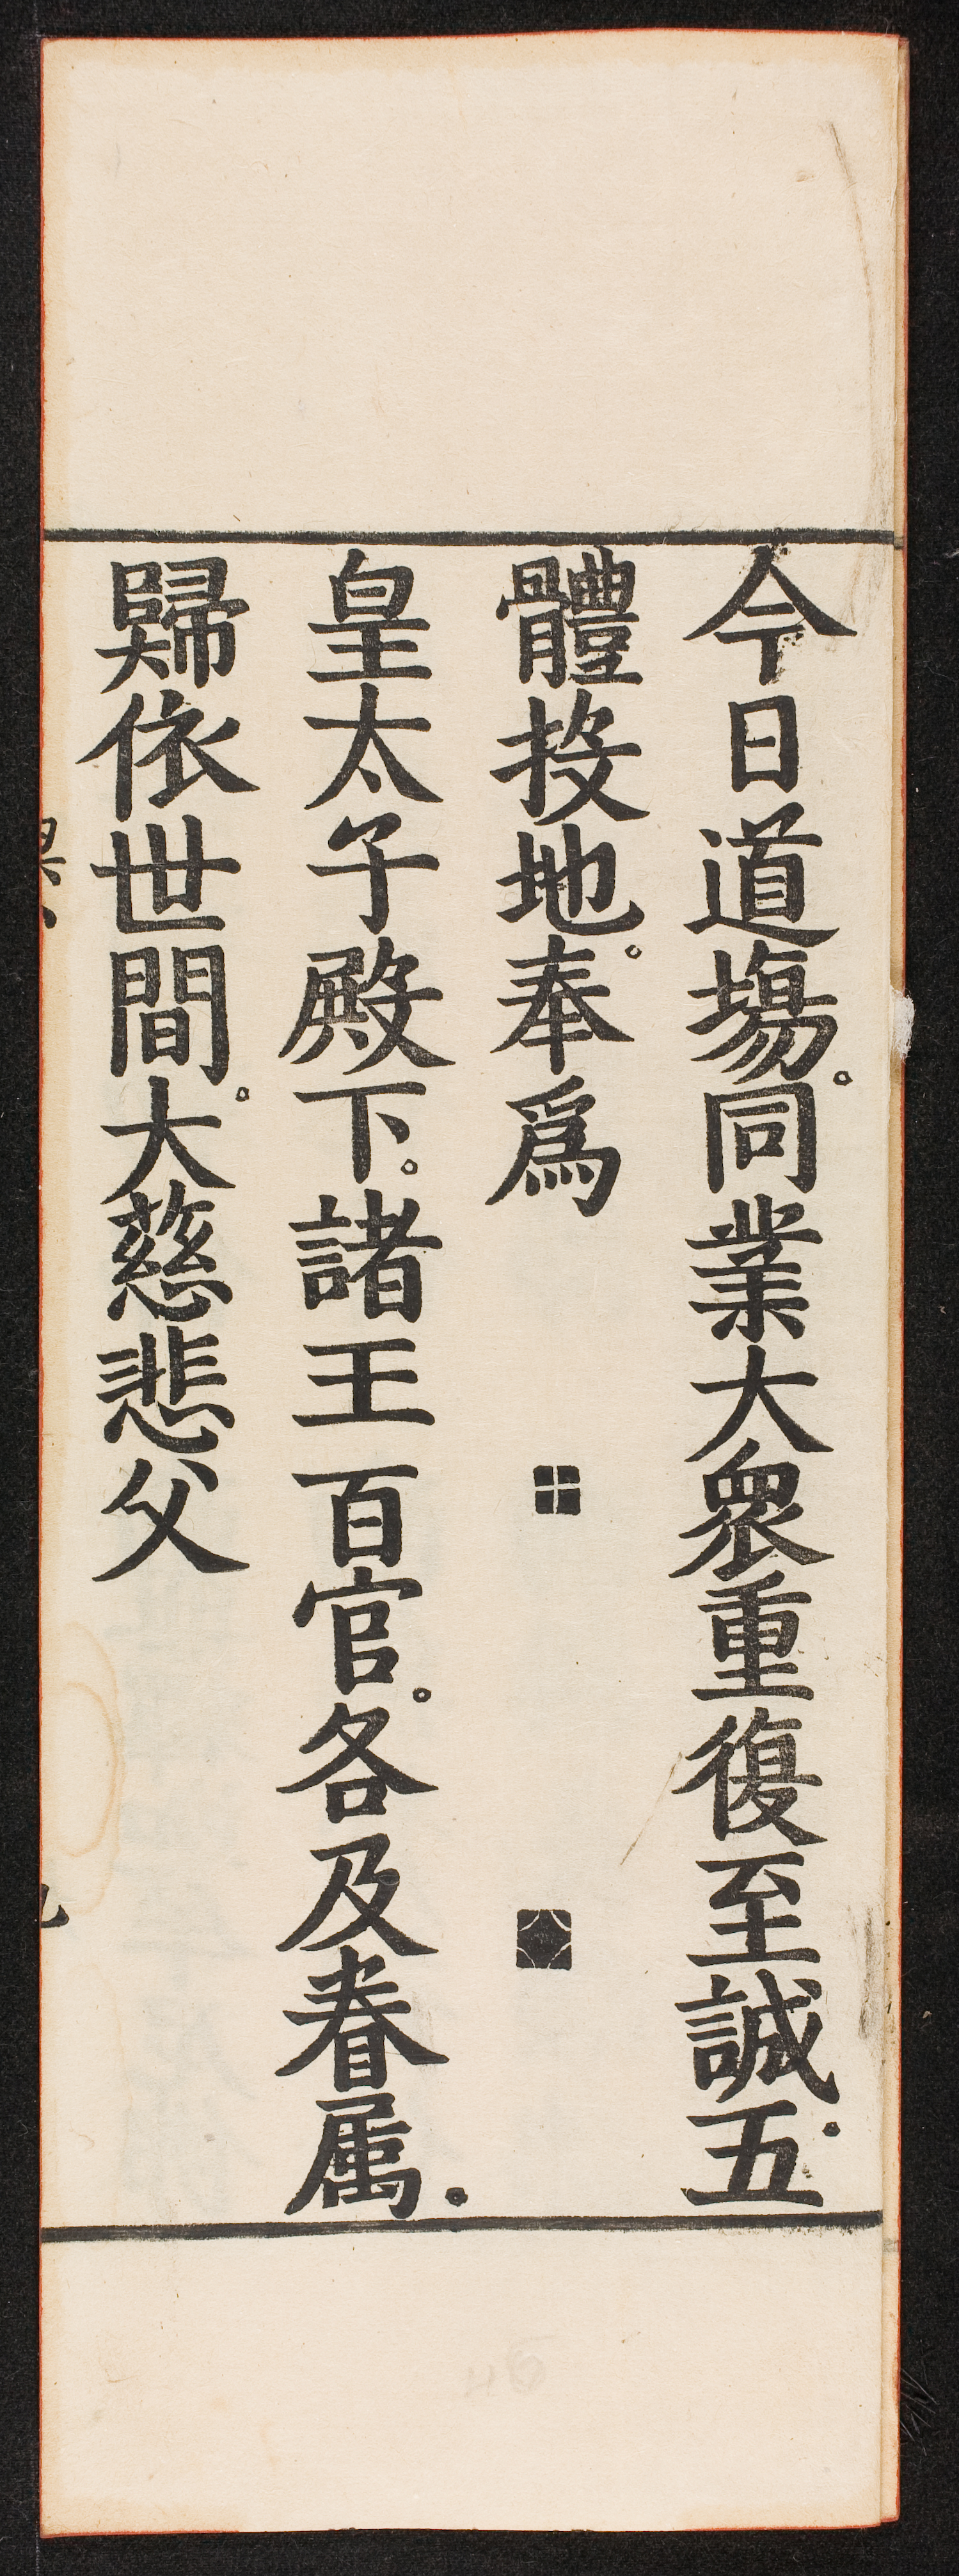 今日道塲。同業大衆重復至誠。五
體投地。奉爲
皇太子殿下。諸王百官。各及眷属。
歸依世間。大慈悲父